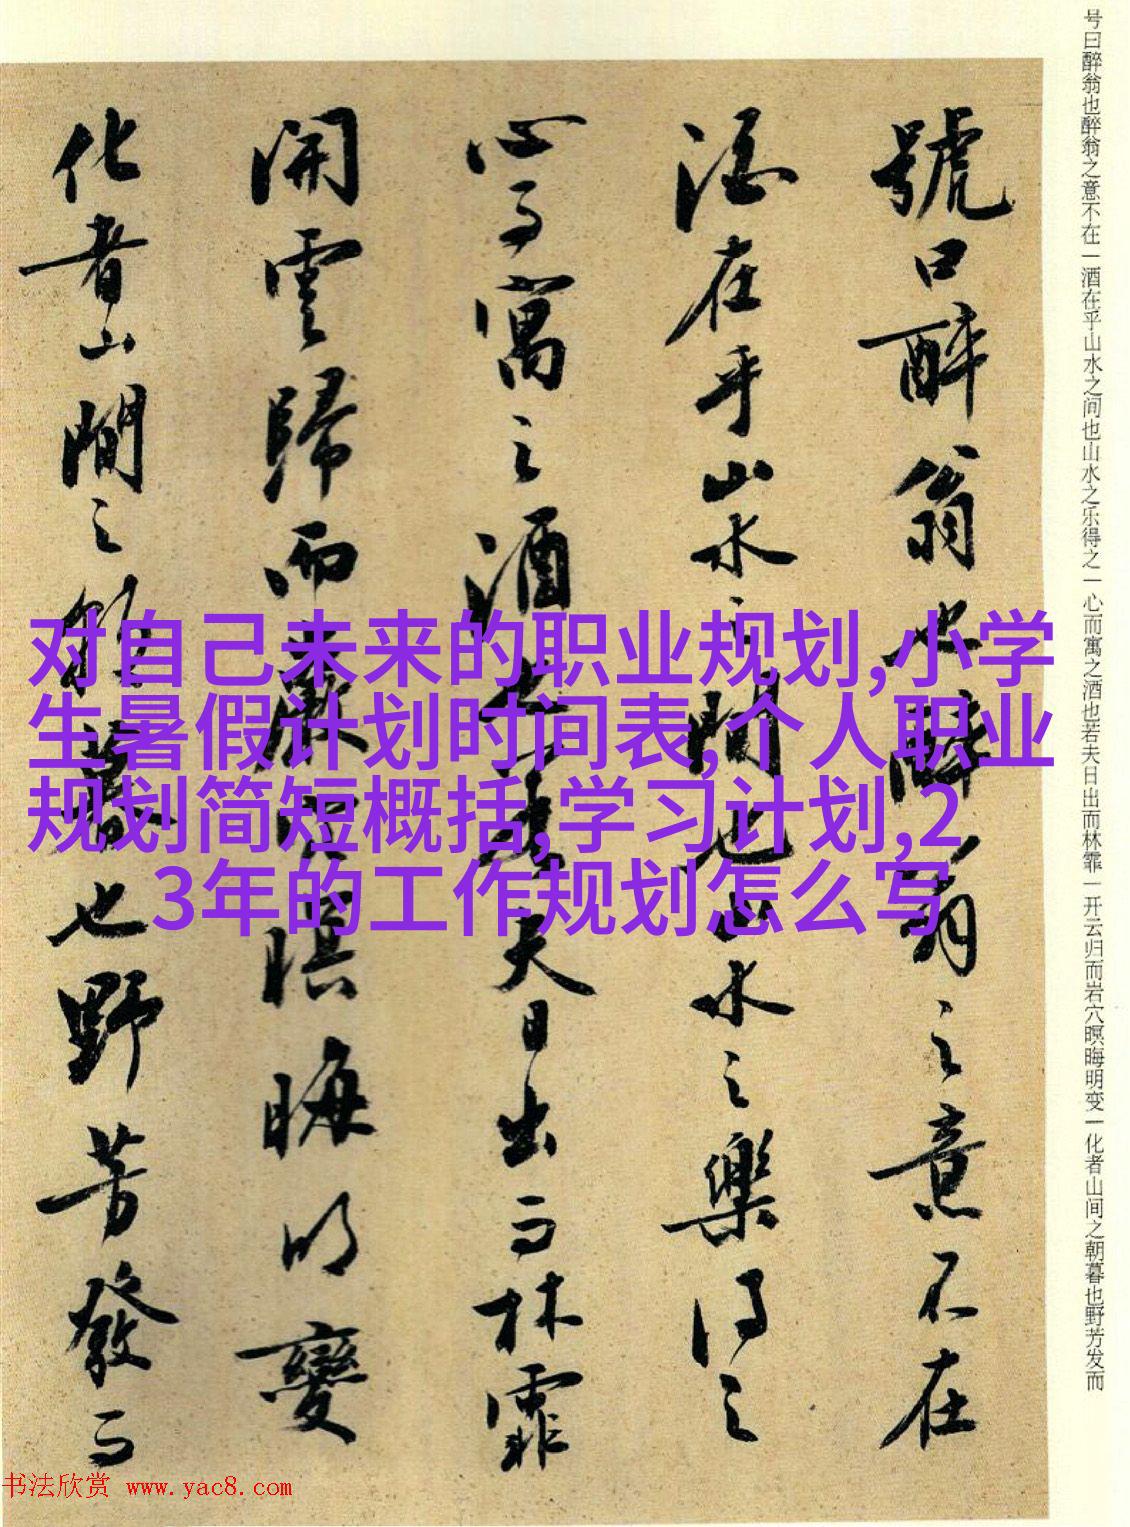 号曰醉翁也醉翁之意不在一酒在乎山水之间也山水之乐得之一心而寓之酒也若夫日出而林霏一开云归而岩穴暝晦明变一化者山间之朝暮也野芳发而
號曰醉翁也醉翁之意不在
酒在乎山水之間也山水之樂得之
心而寓之酒也若夫日出而林霏
開雲歸而巖穴暝晦明變
化者山間之朝暮也野芳發而
对自己未来的职业规划,小学
生暑假计划时间表,个人职业
规划简短概括,学习计划,2
3年的工作规划怎么写
书法欣赏 www.yac8.com